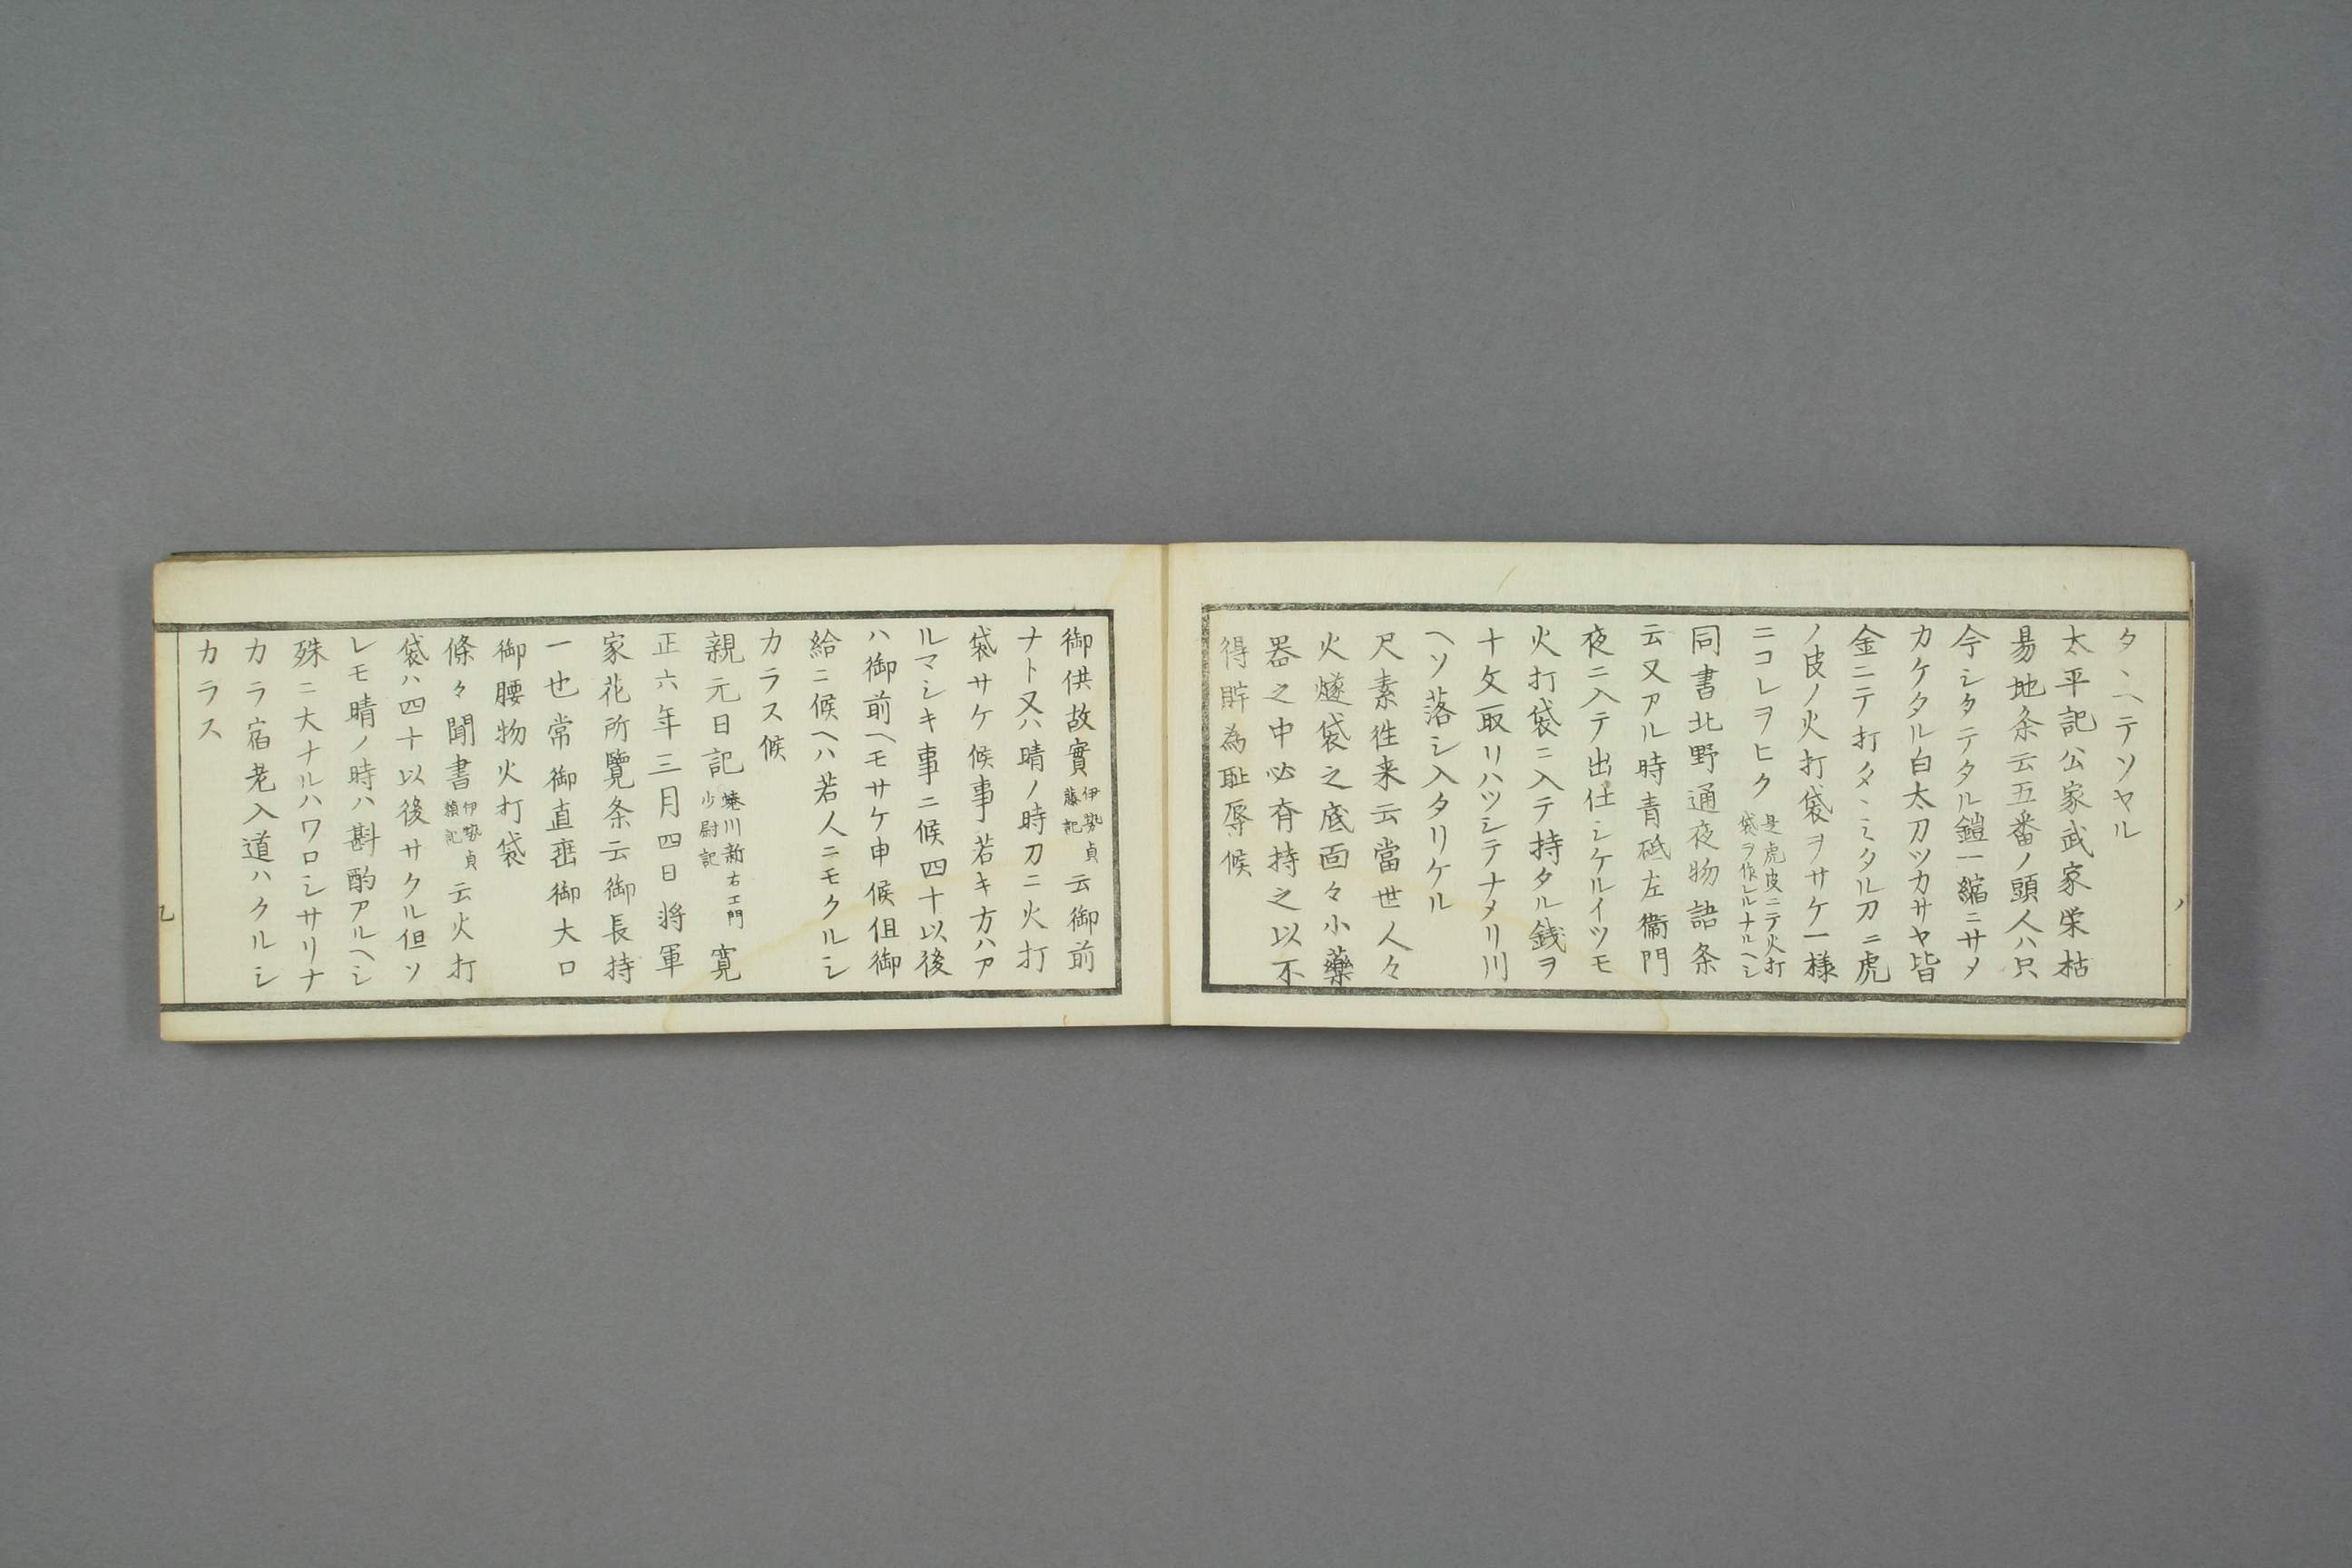 タヽヘテソヤル
太平記公家武家栄枯
易地条云五番ノ頭人ハ只
今シタテタル鎧一縮ニサメ
カケタル白太刀ツカサヤ皆
金ニテ打タヽミタル刀ニ虎
ノ皮ノ火打袋ヲサケ一様
ニコレヲヒク 是虎皮ニテ火打
袋ヲ作レルナルヘシ
同書北野通夜物語条
云又アル時青砥左衛門
夜ニ入テ出仕シケルイツモ
火打袋ニ入テ持タル銭ヲ
十文取リハツシテナメリ川
ヘソ落シ入タリケル
尺素往来云當世人々
火燧袋之底面々小藥
器之中必有持之以不
得貯為耻辱候
御供故實 伊勢貞
藤記 云御前
ナト又ハ晴ノ時刀ニ火打
袋サケ候事若キ方ハア
ルマシキ事ニ候四十以後
ハ御前ヘモサケ申候但御
給ニ候ヘハ若人ニモクルシ
カラス候
親元日記 蜷川新右エ門
少尉記 寛
正六年三月四日将軍
家花所覽条云御長持
一也常御直垂御大口
御腰物火打袋
條々聞書 伊勢貞
頼記 云火打
袋ハ四十以後サクル但ソ
レモ晴ノ時ハ斟酌アルヘシ
殊ニ大ナルハワロシサリナ
カラ宿老入道ハクルシ
カラス